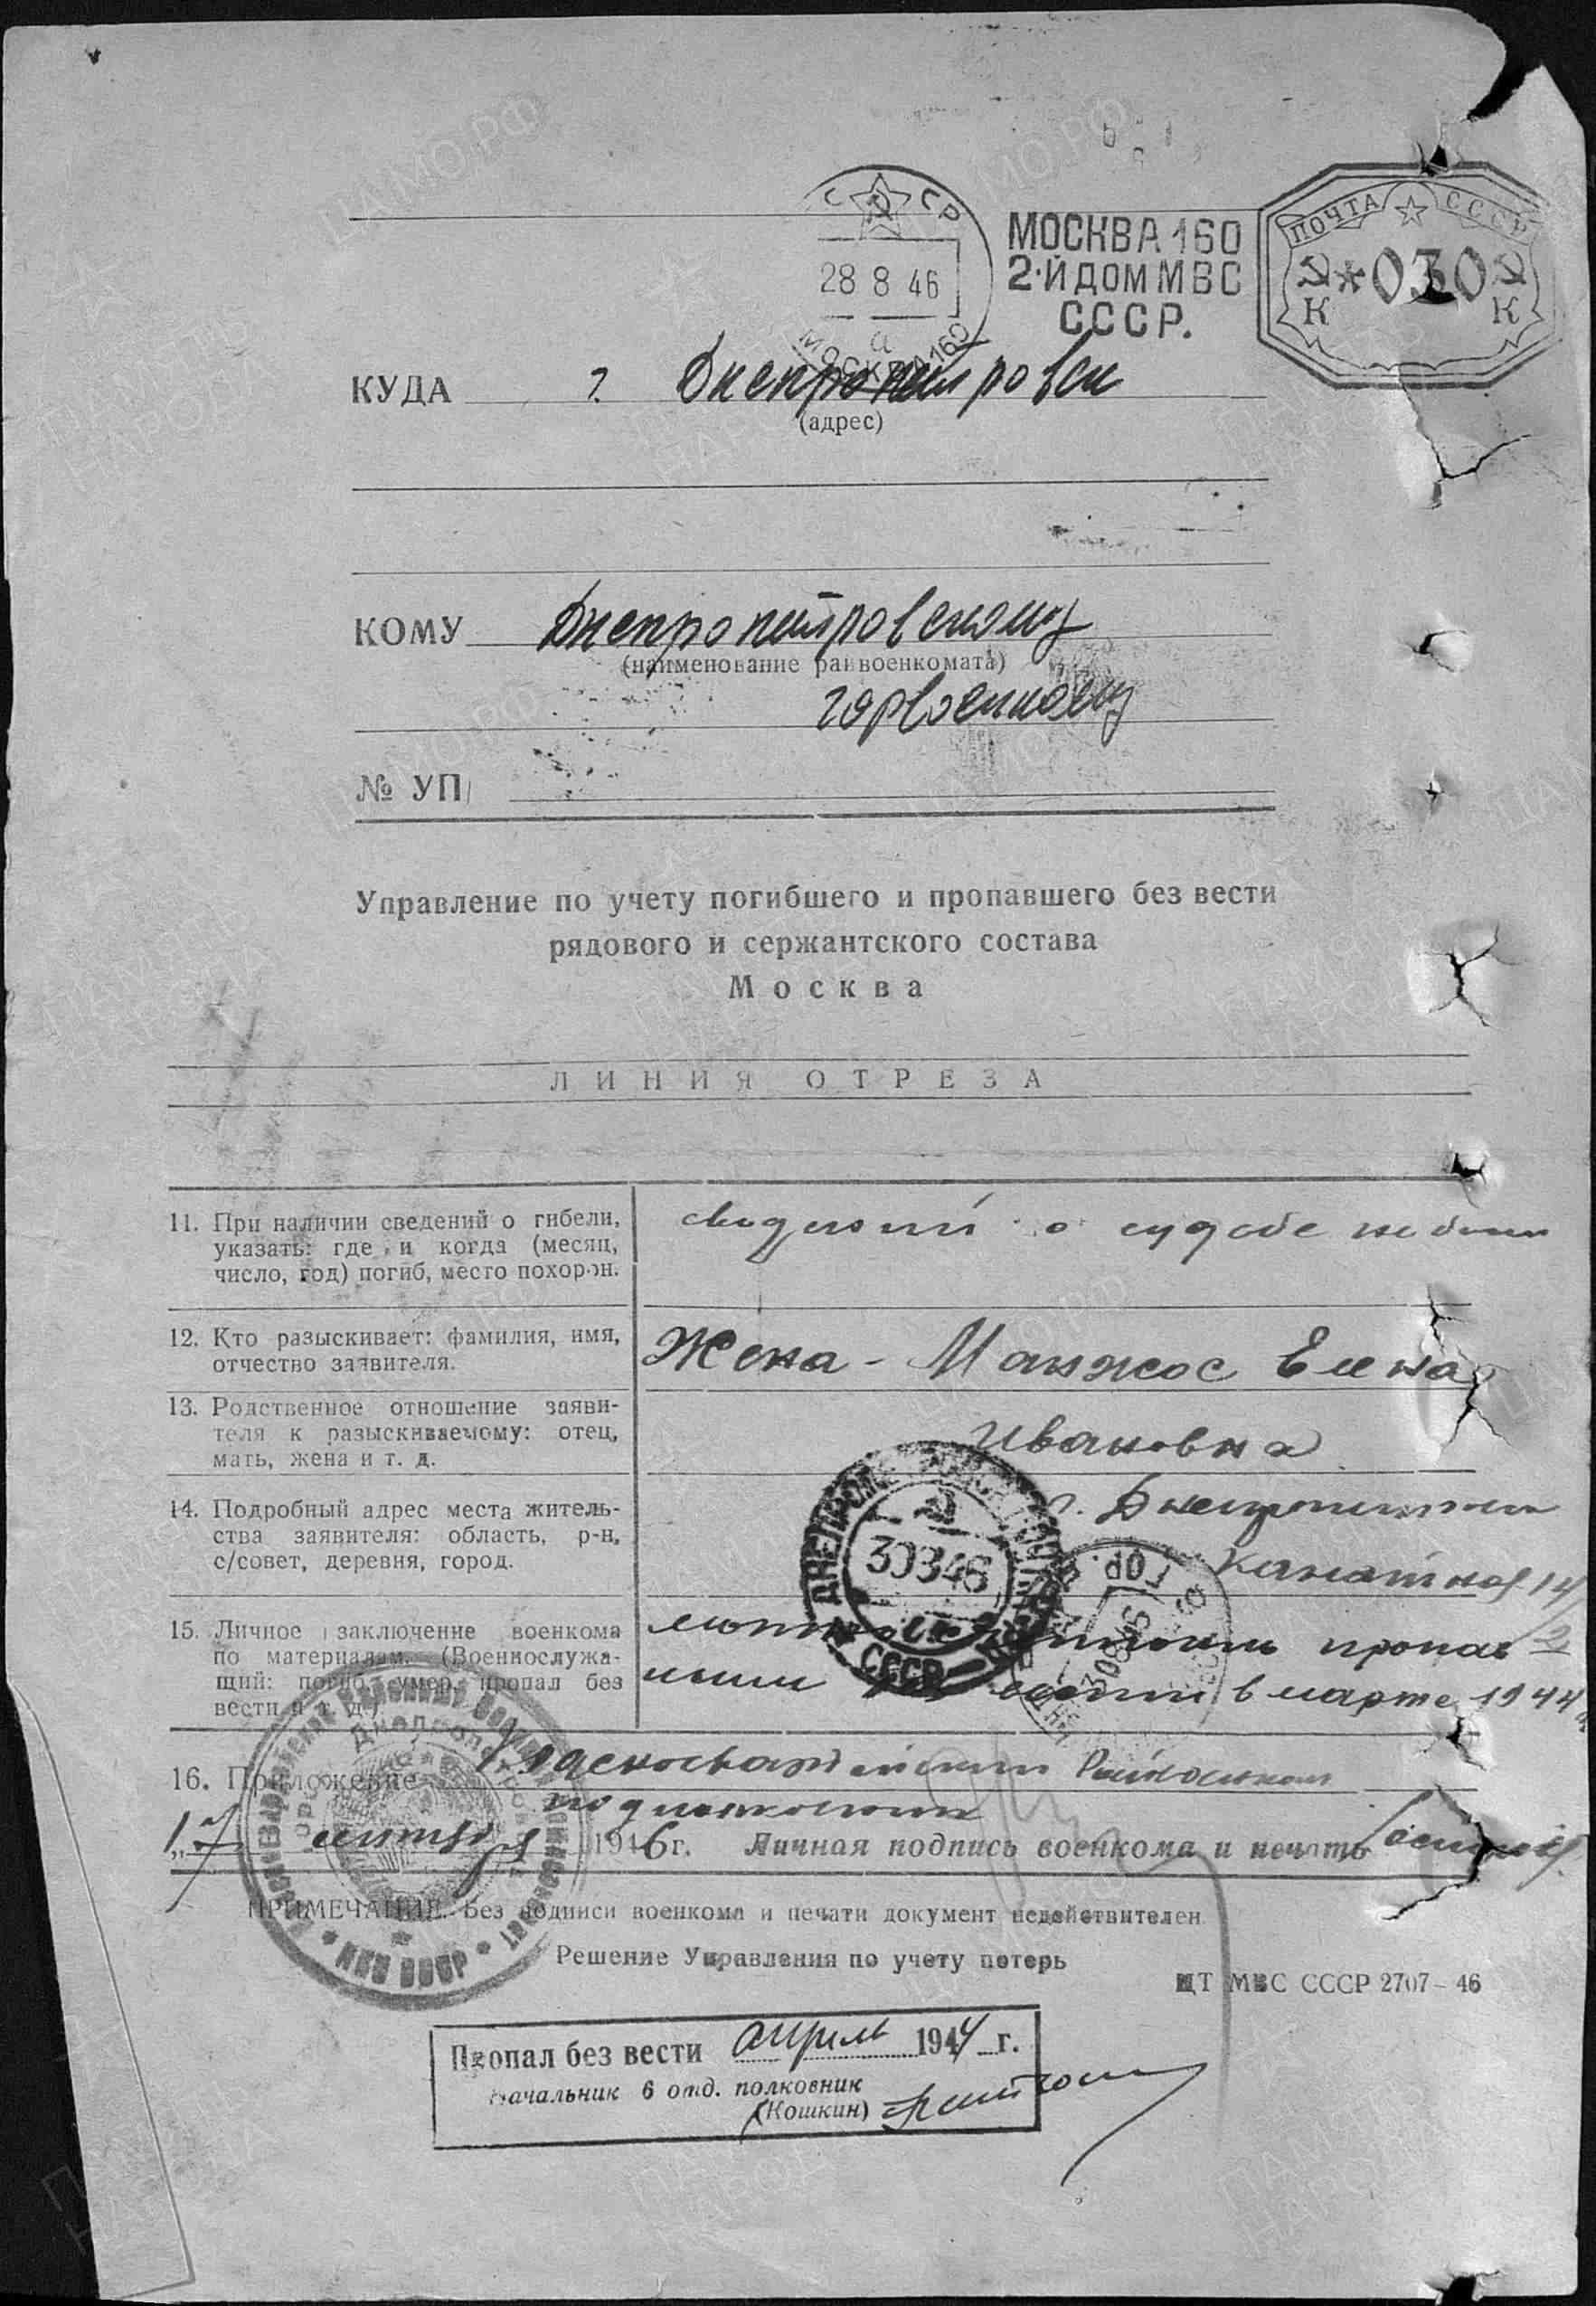 С СР
28 8 46
а
МОСКВА 160
МОСКВА 160
2-Й ДОМ МВС
СССР.
ПОЧТА СССР
К 030 К
КУДА г. Днепропетровск
(адрес)
КОМУ Днепропетровскому
(наименование райвоенкомата)
горвоенкому
№ УП
Управление по учету погибшего и пропавшего без вести
рядового и сержантского состава
Москва
ЛИНИЯ ОТРЕЗА
11. При наличии сведений о гибели,
указать: где и когда (месяц,
число, год) погиб, место похорон.
сведений о судьбе не имею
12. Кто разыскивает: фамилия, имя,
отчество заявителя.
Жена - Манжос Елена
13. Родственное отношение заяви-
теля к разыскиваемому: отец,
мать, жена и т. д.
Ивановна
14. Подробный адрес места житель-
ства заявителя: область, р-н,
с/совет, деревня, город.
г. Днепропетровск
Канатная 14/2
15. Личное заключение военкома
по материалам. (Военнослужа-
щий: погиб, умер, пропал без
вести и т. д.)
можно считать пропав-
шим без вести в марте 1944
16. Приложение
Красногвардейский Райвоенком
подполковник
"17" сентября 1946 г. Личная подпись военкома и печать
ПРИМЕЧАНИЕ. Без подписи военкома и печати документ недействителен
Решение Управления по учету потерь
ЦТ МВС СССР 2707-46
Пропал без вести апрель 1944 г.
Начальник 6 отд. полковник
(Кошкин)